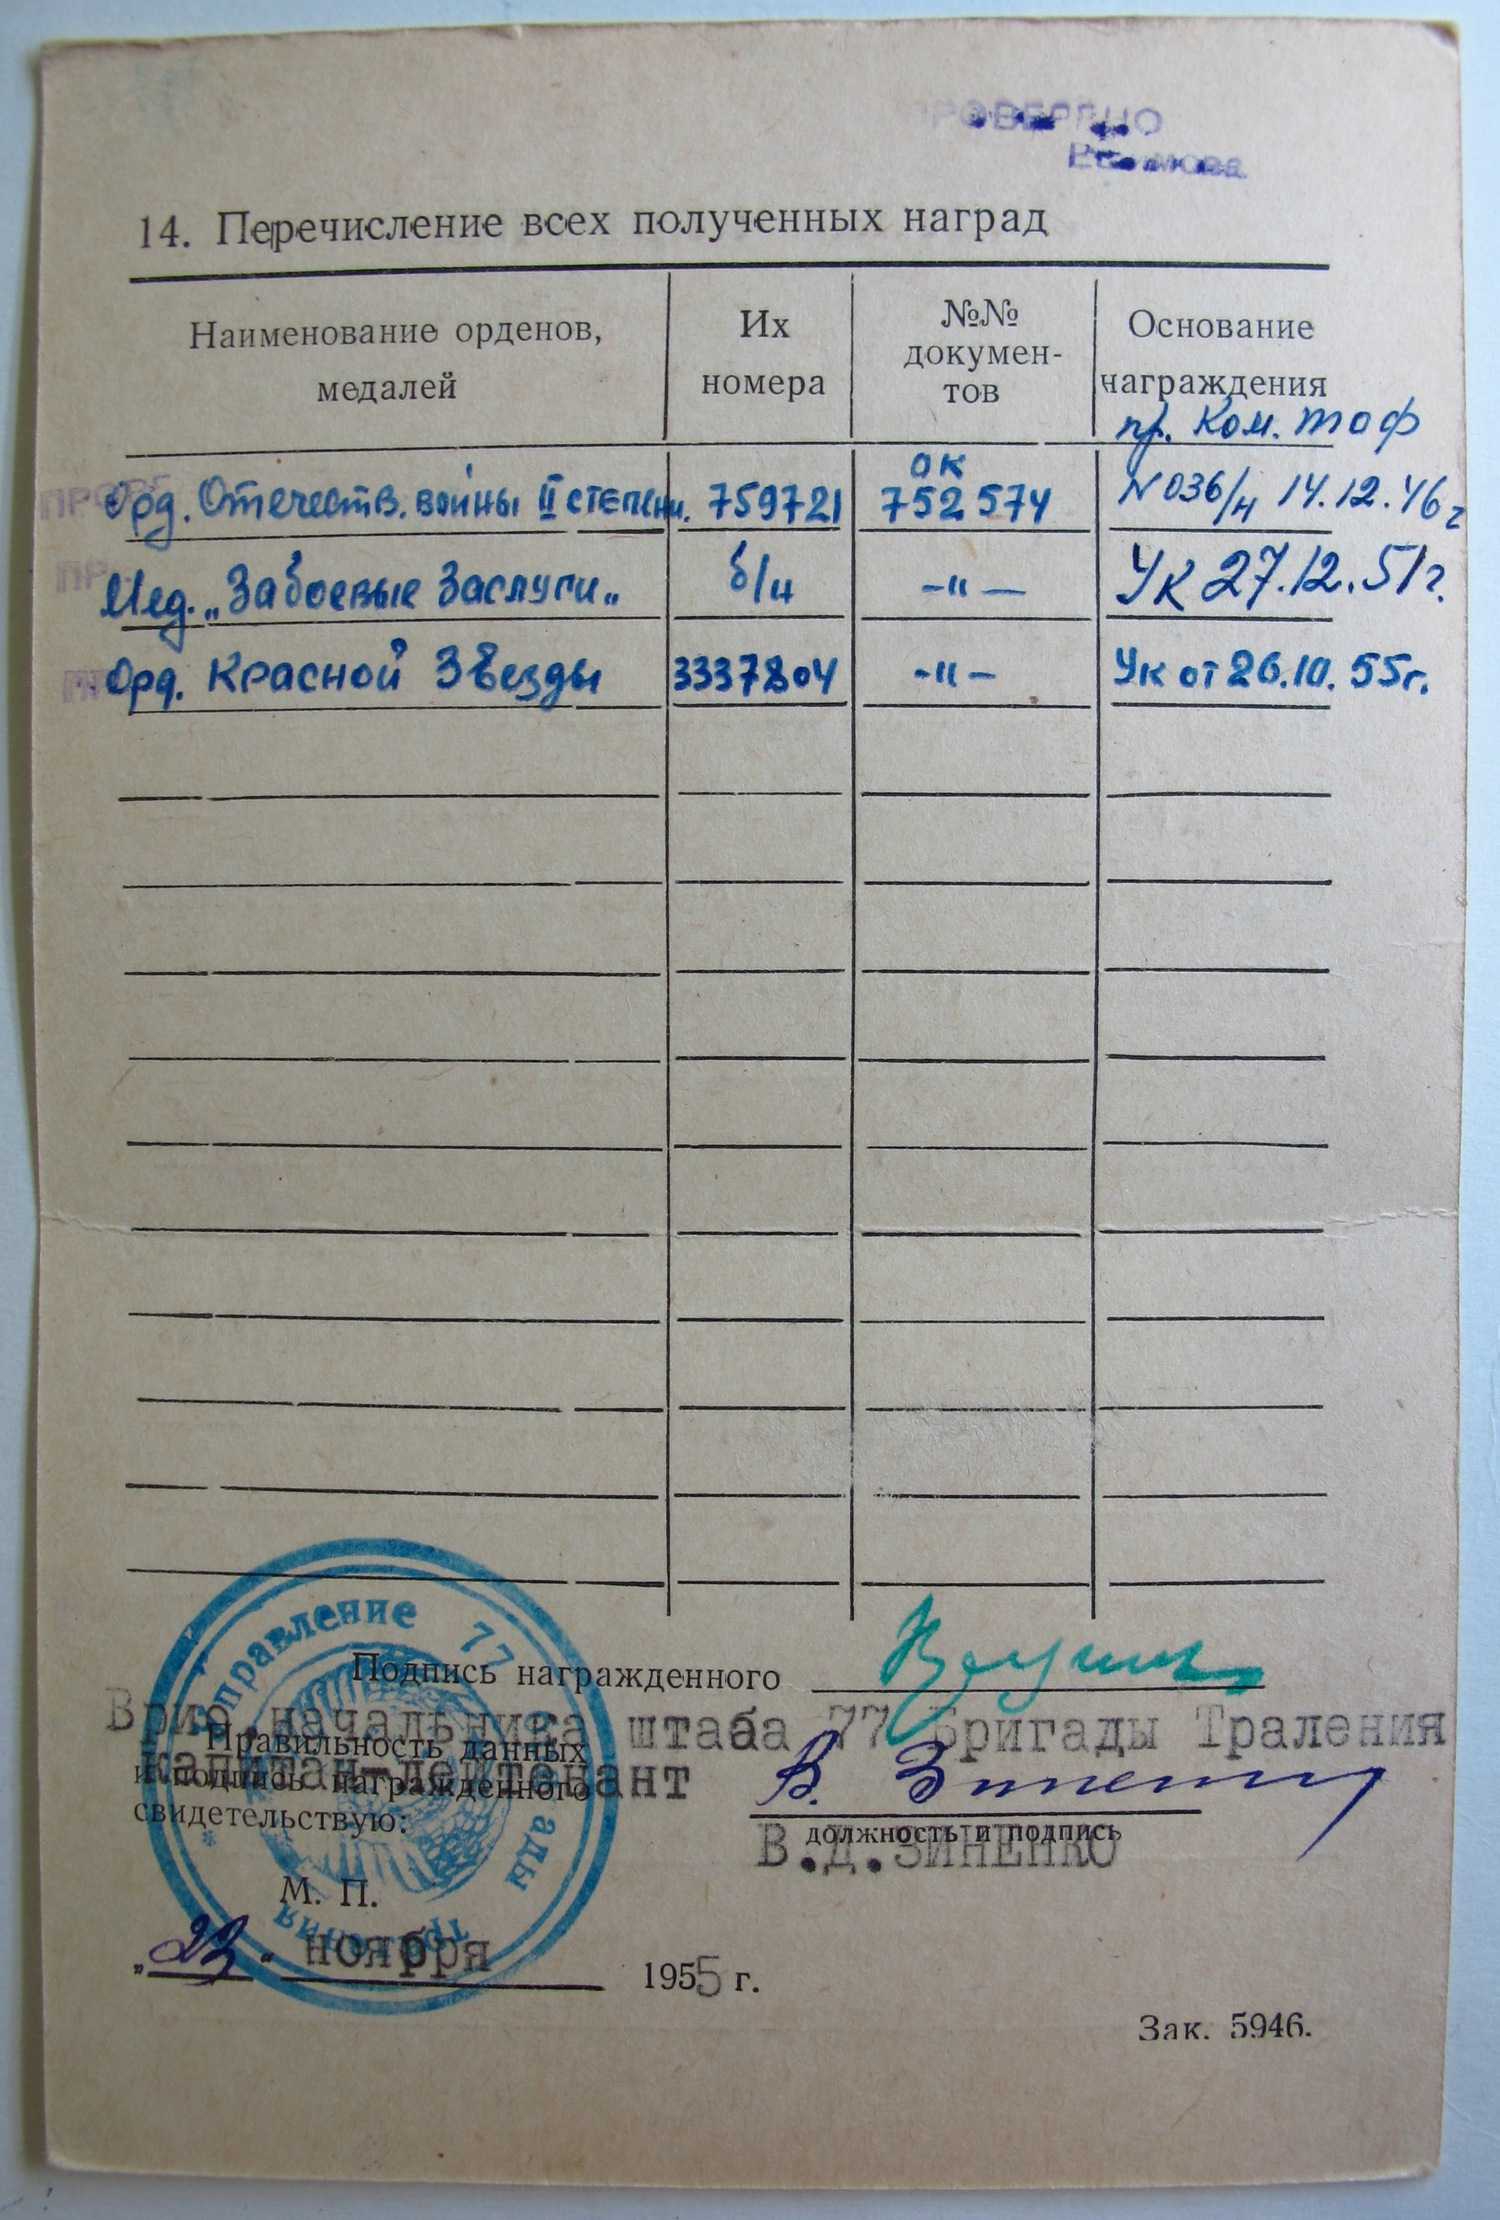 ПРОВЕРЕНО
14. Перечисление всех полученных наград
Наименование орденов, медалей
Их номера
№№ докумен-
тов
Основание награждения
пр. Ком. ТОФ
Орд. Отечеств. войны II степени. 759721 ОК 752574 N 036/н 14.12.46 г
Мед. „За боевые заслуги„ б/н -"- Ук 27.12.51г.
Орд. Красной Звезды 3337804 -"- Ук от 26.10.55г.
Управление 77
Подпись награжденного
Врио начальника штаба 77 Бригады Траления
капитан-лейтенант
Правильность данных
и подпись награжденного
свидетельствую:
должность и подпись
В.Д.ЗИНЕНКО
М. П.
„23" ноября 1955 г.
Зак. 5946.